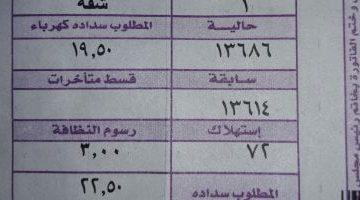 ١ شقة
حالية المطلوب سداده كهرباء
١٣٦٨٦ ١٩,٥٠
سابقة قسط متأخرات
١٣٦١٤
إستهلاك رسوم النظافة
٧٢ ٣,٠٠
المطلوب سداده ٢٢,٥٠
وختم الفاتورة بخاتم